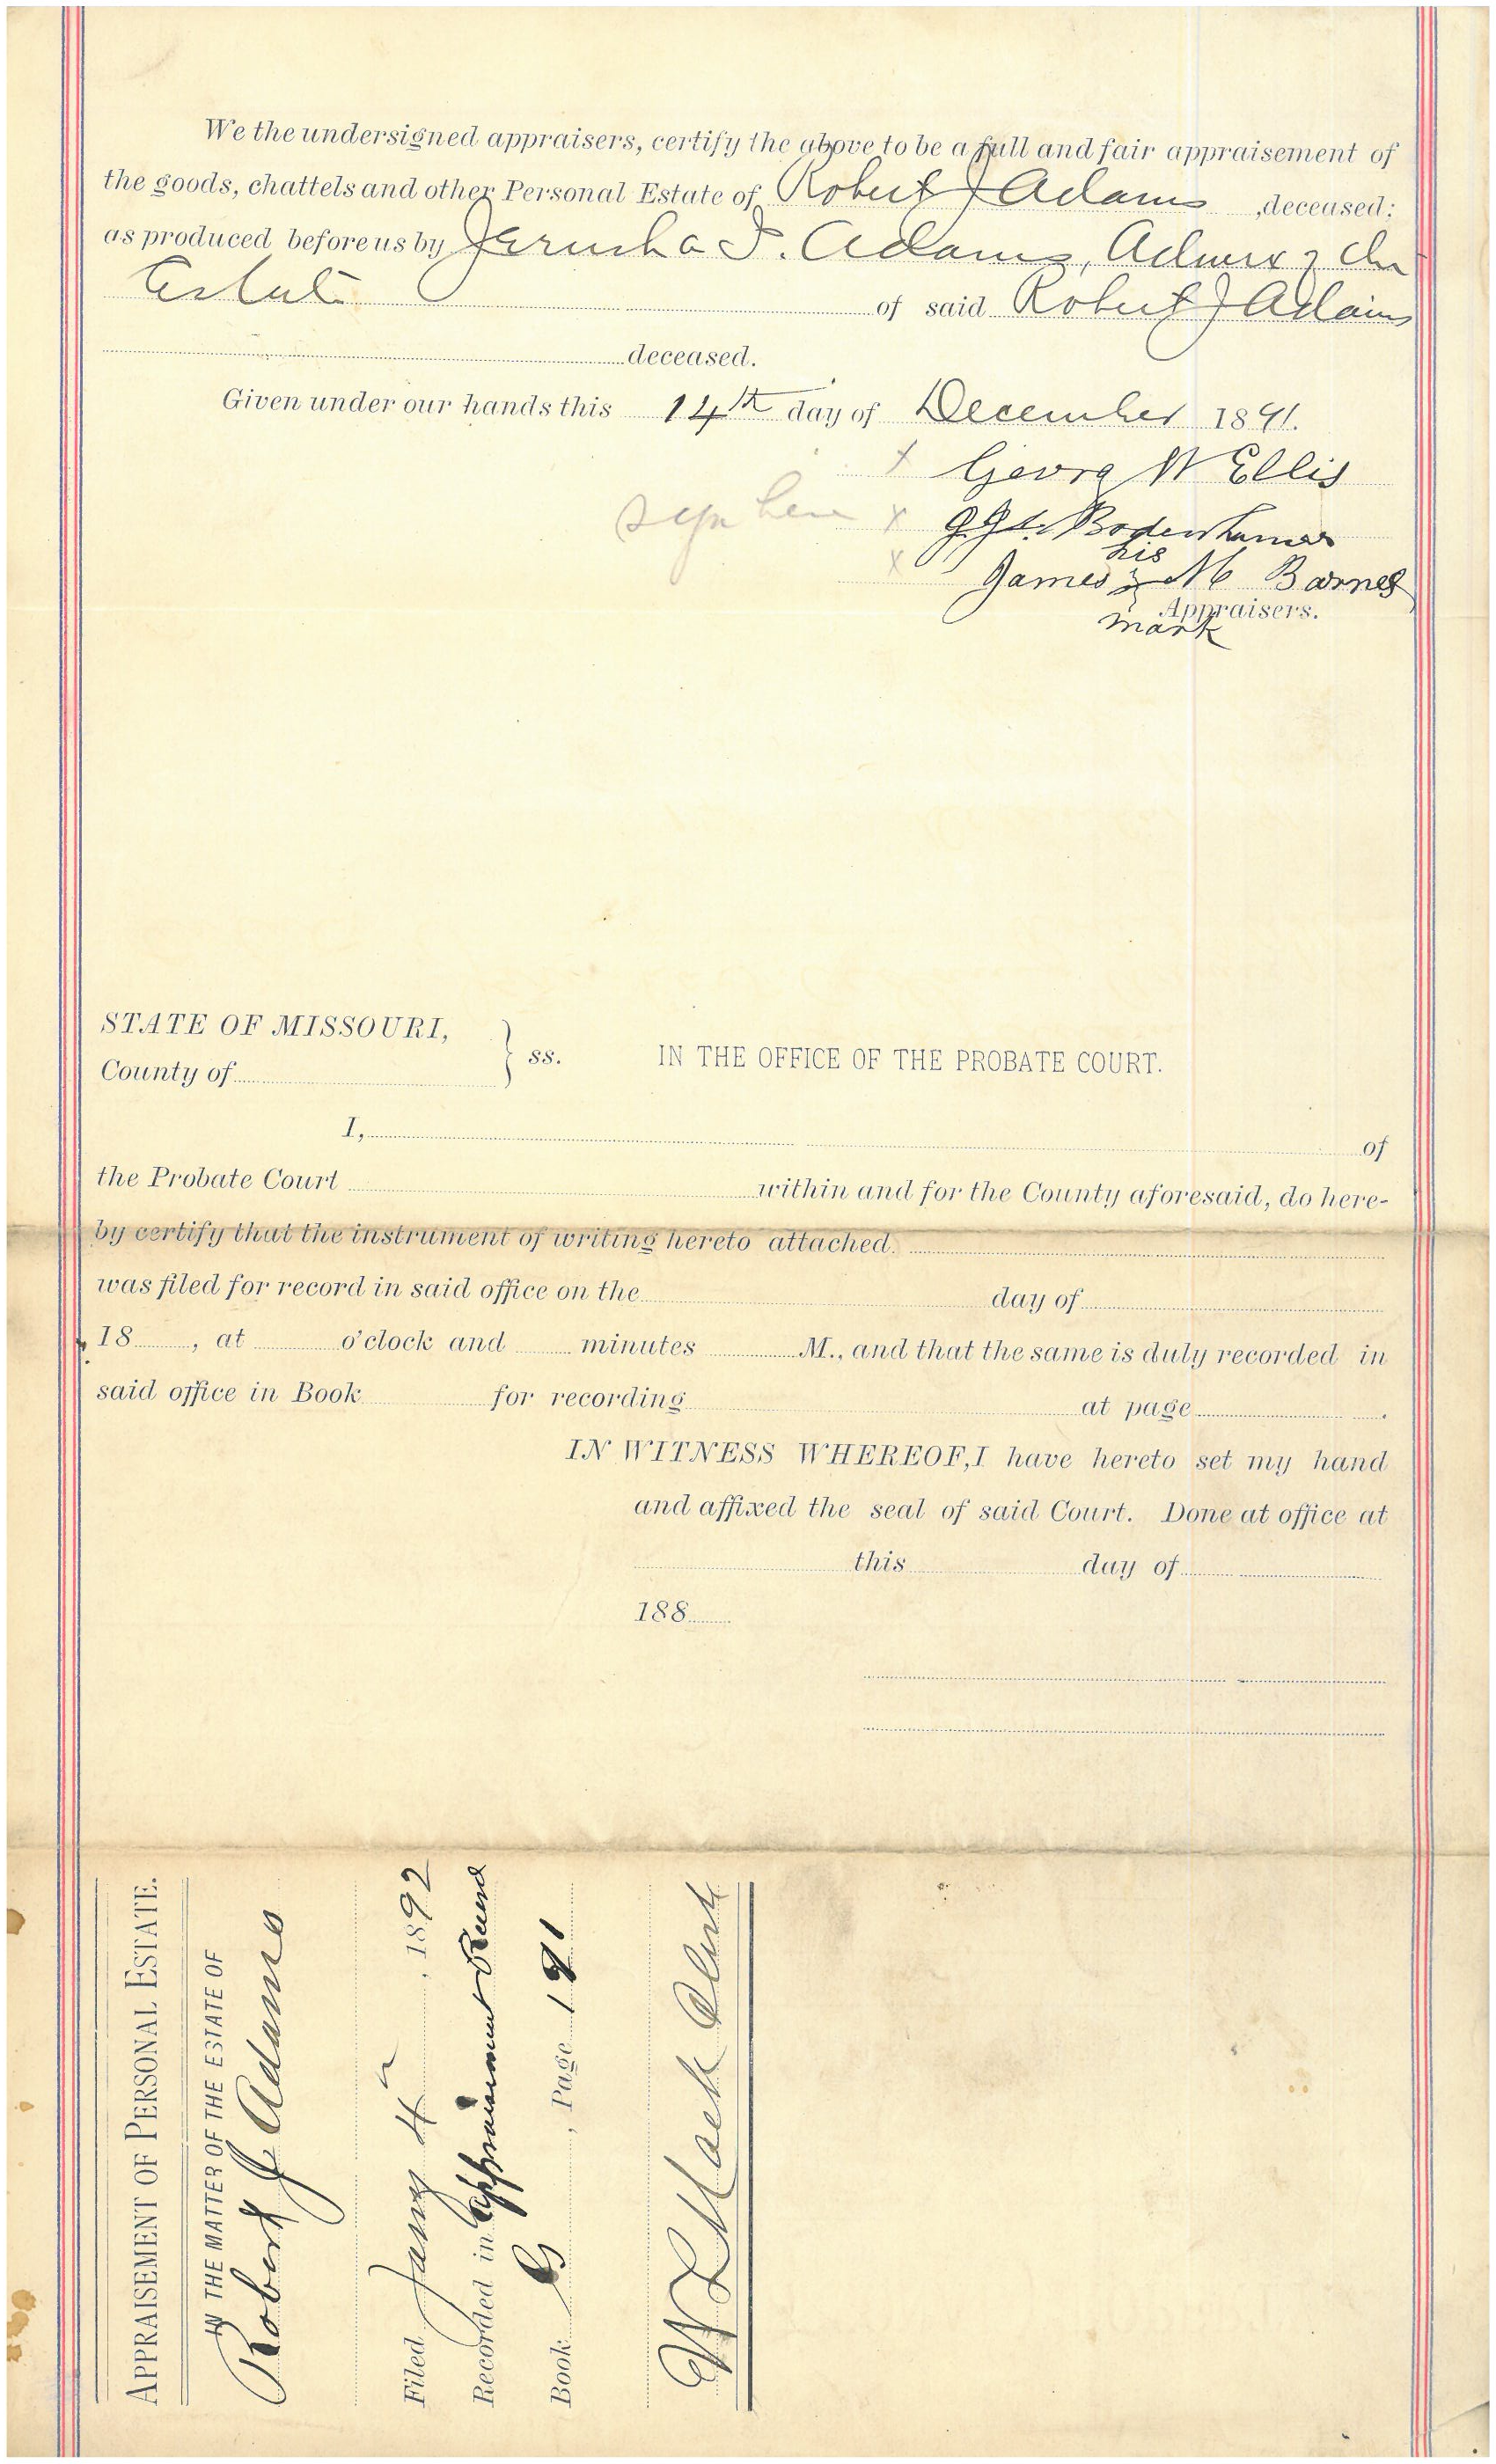 We the undersigned appraisers, certify the above to be a full and fair appraisement of
the goods, chattels and other Personal Estate of Robert J Adams , deceased;
as produced before us by Jerusha I. Adams, Admrx of the
Estate of said Robert J Adams
deceased.
Given under our hands this 14th day of December 1891.
x Georg W Ellis
sign here x Bodenhamer
his
x James M Barnes
Appraisers.
mark
STATE OF MISSOURI,
County of } ss. IN THE OFFICE OF THE PROBATE COURT.
I, of
the Probate Court within and for the County aforesaid, do here-
by certify that the instrument of writing hereto attached.
was filed for record in said office on the day of
18 , at o'clock and minutes M., and that the same is duly recorded in
said office in Book for recording at page .
IN WITNESS WHEREOF, I have hereto set my hand
and affixed the seal of said Court. Done at office at
this day of
188
APPRAISEMENT OF PERSONAL ESTATE.
IN THE MATTER OF THE ESTATE OF
Robert J Adams
Filed Jany 4" , 1892
Recorded in Appraisement Record
Book G , Page 191
W L Mack Clerk